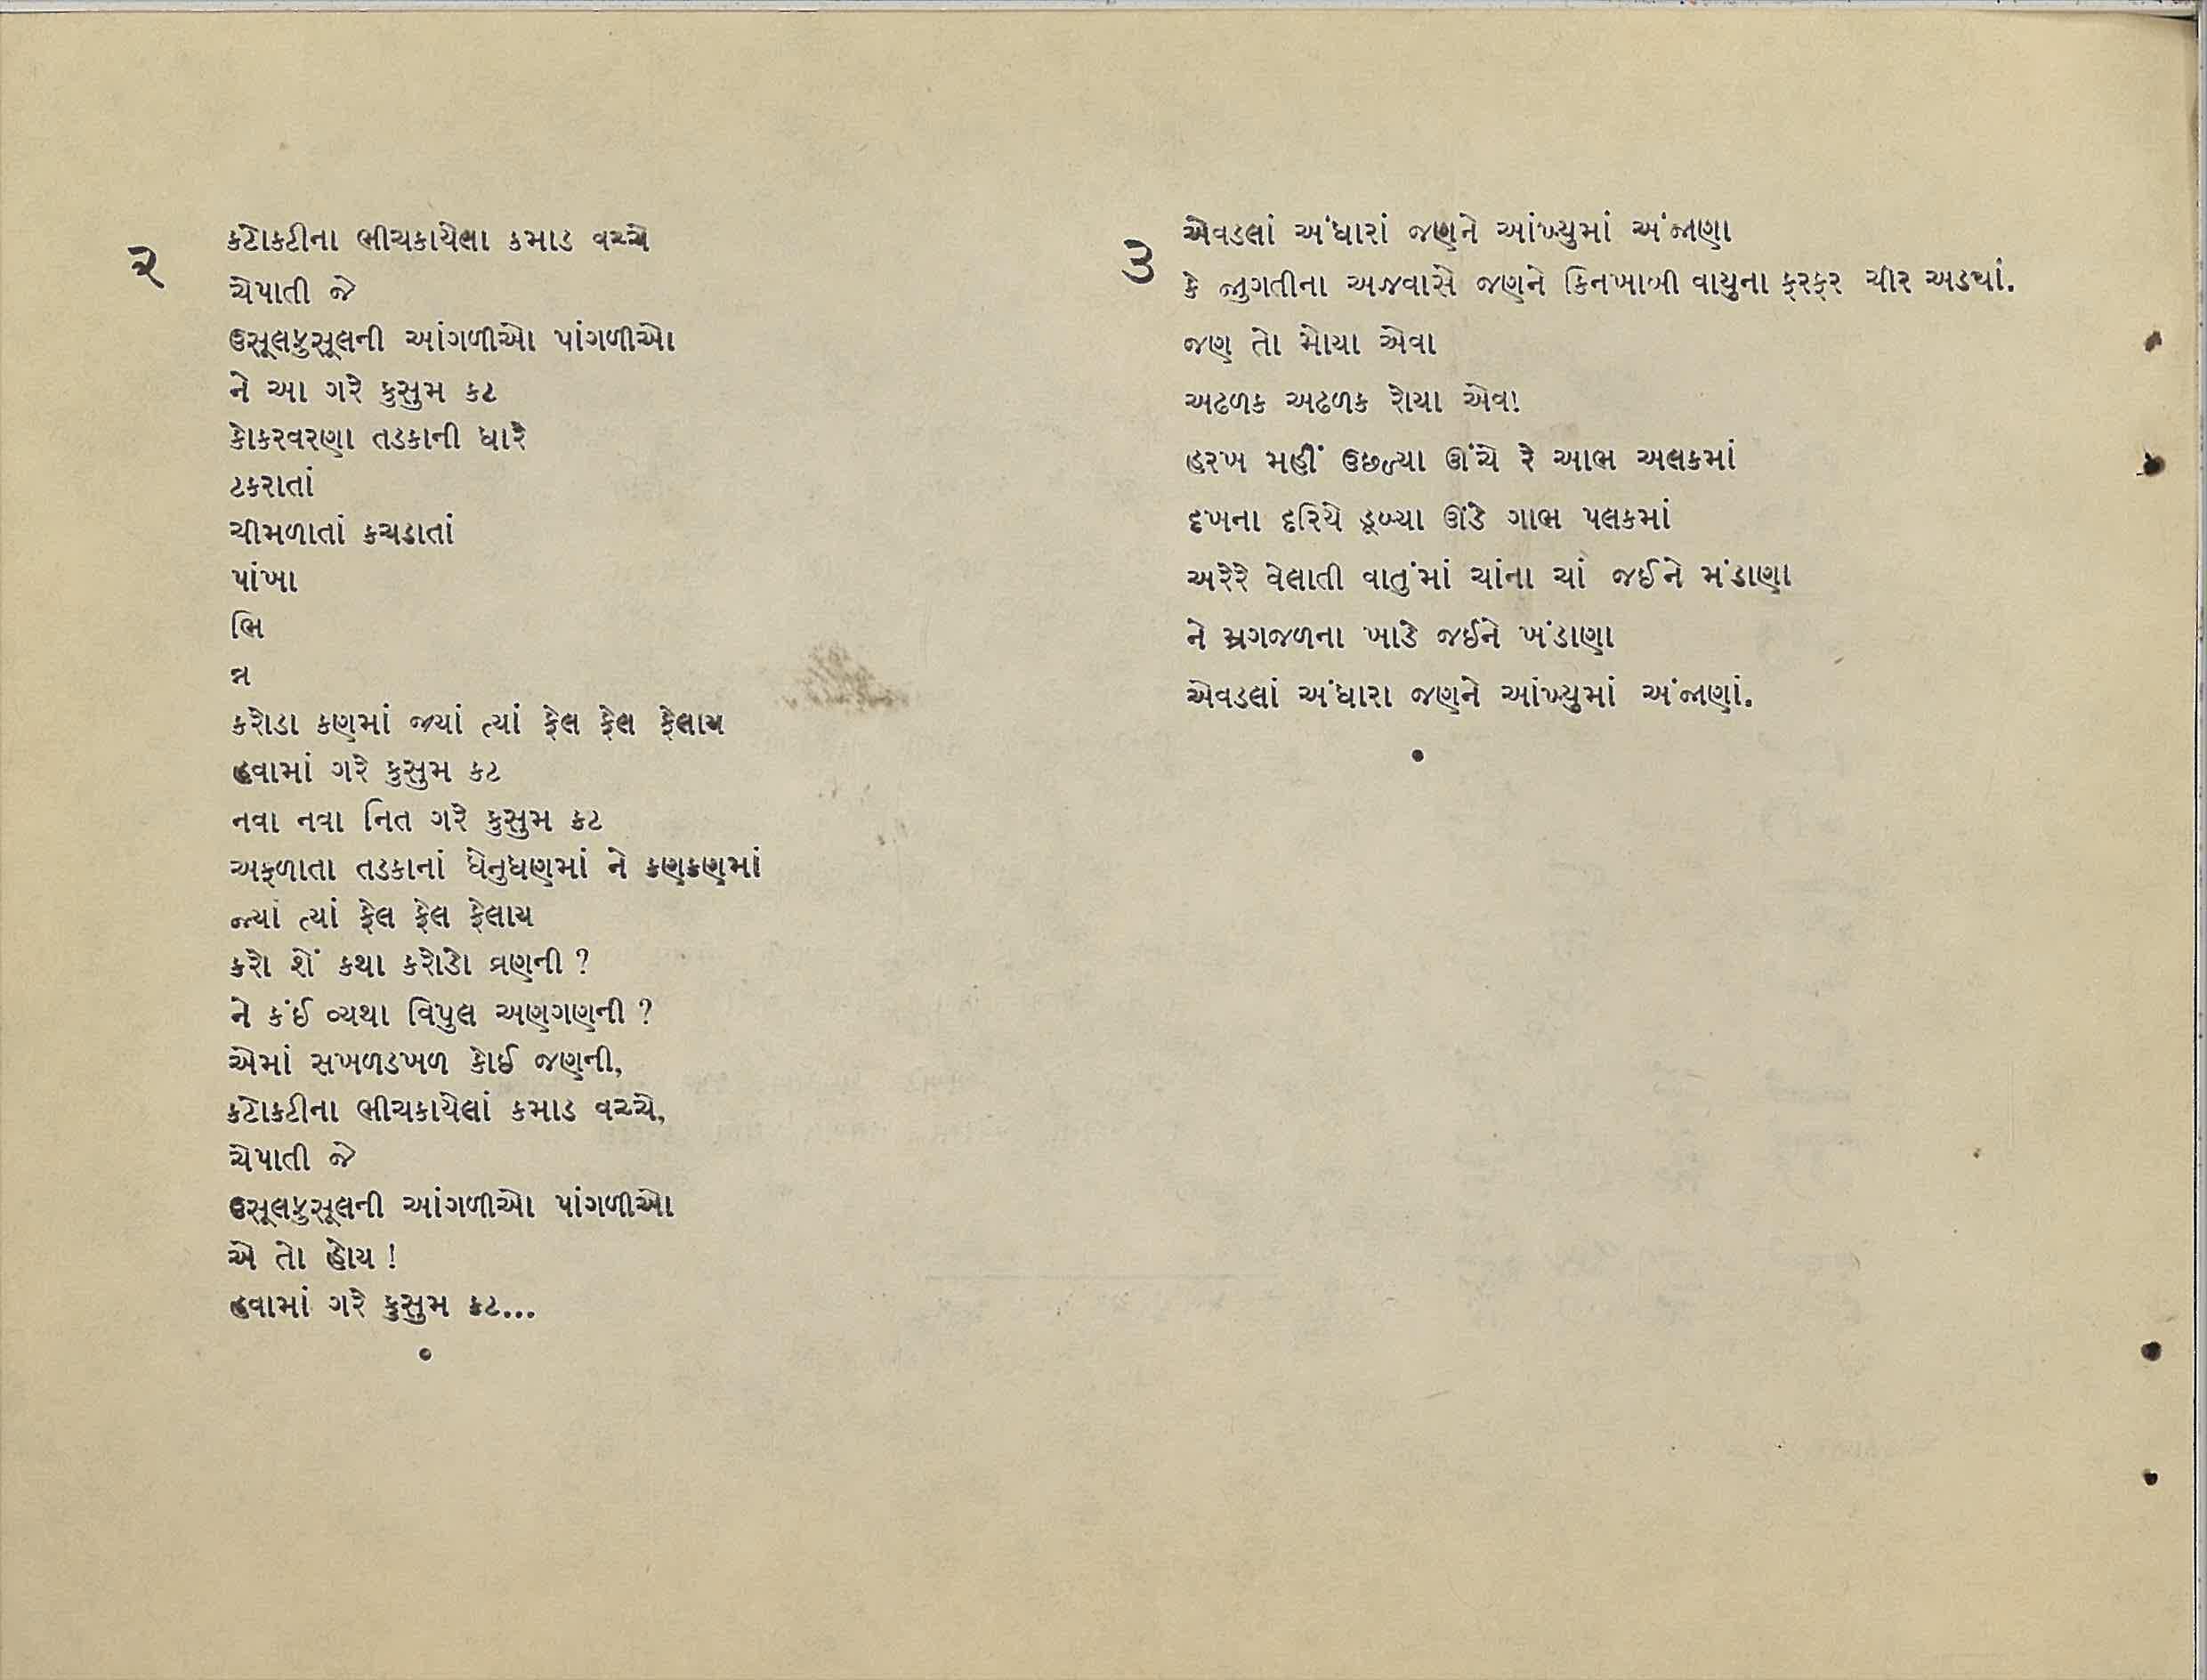 ૨
કટોકટીના ભીચકાયેલા કમાડ વચ્ચે
ચેપાતી જે
ઉસૂલફુસૂલની આંગળીઓ પાંગળીઓ
ને આ ગરે કુસુમ કટ
કોકરવરણા તડકાની ધારે
ટકરાતાં
ચીમળાતાં કચડાતાં
પાંખા
ભિ
ન્ન
કરોડા કણમાં જ્યાં ત્યાં ફેલ ફેલ ફેલાય
હવામાં ગરે કુસુમ કટ
નવા નવા નિત ગરે કુસુમ કટ
અફળાતા તડકાનાં ધેનુધણમાં ને કણકણમાં
જ્યાં ત્યાં ફેલ ફેલ ફેલાય
કરો શેં કથા કરોડો વ્રણની ?
ને કંઈ વ્યથા વિપુલ અણગણની ?
એમાં સખળડખળ કોઈ જણની,
કટોકટીના ભીચકાયેલાં કમાડ વચ્ચે,
ચેપાતી જે
ઉસૂલફુસૂલની આંગળીઓ પાંગળીઓ
એ તો હોય !
હવામાં ગરે કુસુમ કટ...
૩
એવડલાં અંધારાં જણને આંખ્યુમાં અંજાણા
કે જુગતીના અજવાસે જણને કિનખાબી વાયુના ફરફર ચીર અડયાં.
જણ તો મોયા એવા
અઢળક અઢળક રોયા એવા
હરખ મહીં ઉછળ્યા ઊંચે રે આભ અલકમાં
દખના દરિયે ડૂબ્યા ઊંડે ગાભ પલકમાં
અરેરે વેલાતી વાતુંમાં ચાંના ચાં જઈને મંડાણા
ને મ્રગજળના ખાડે જઈને ખંડાણા
એવડલાં અંધારા જણને આંખ્યુમાં અંજાણાં.